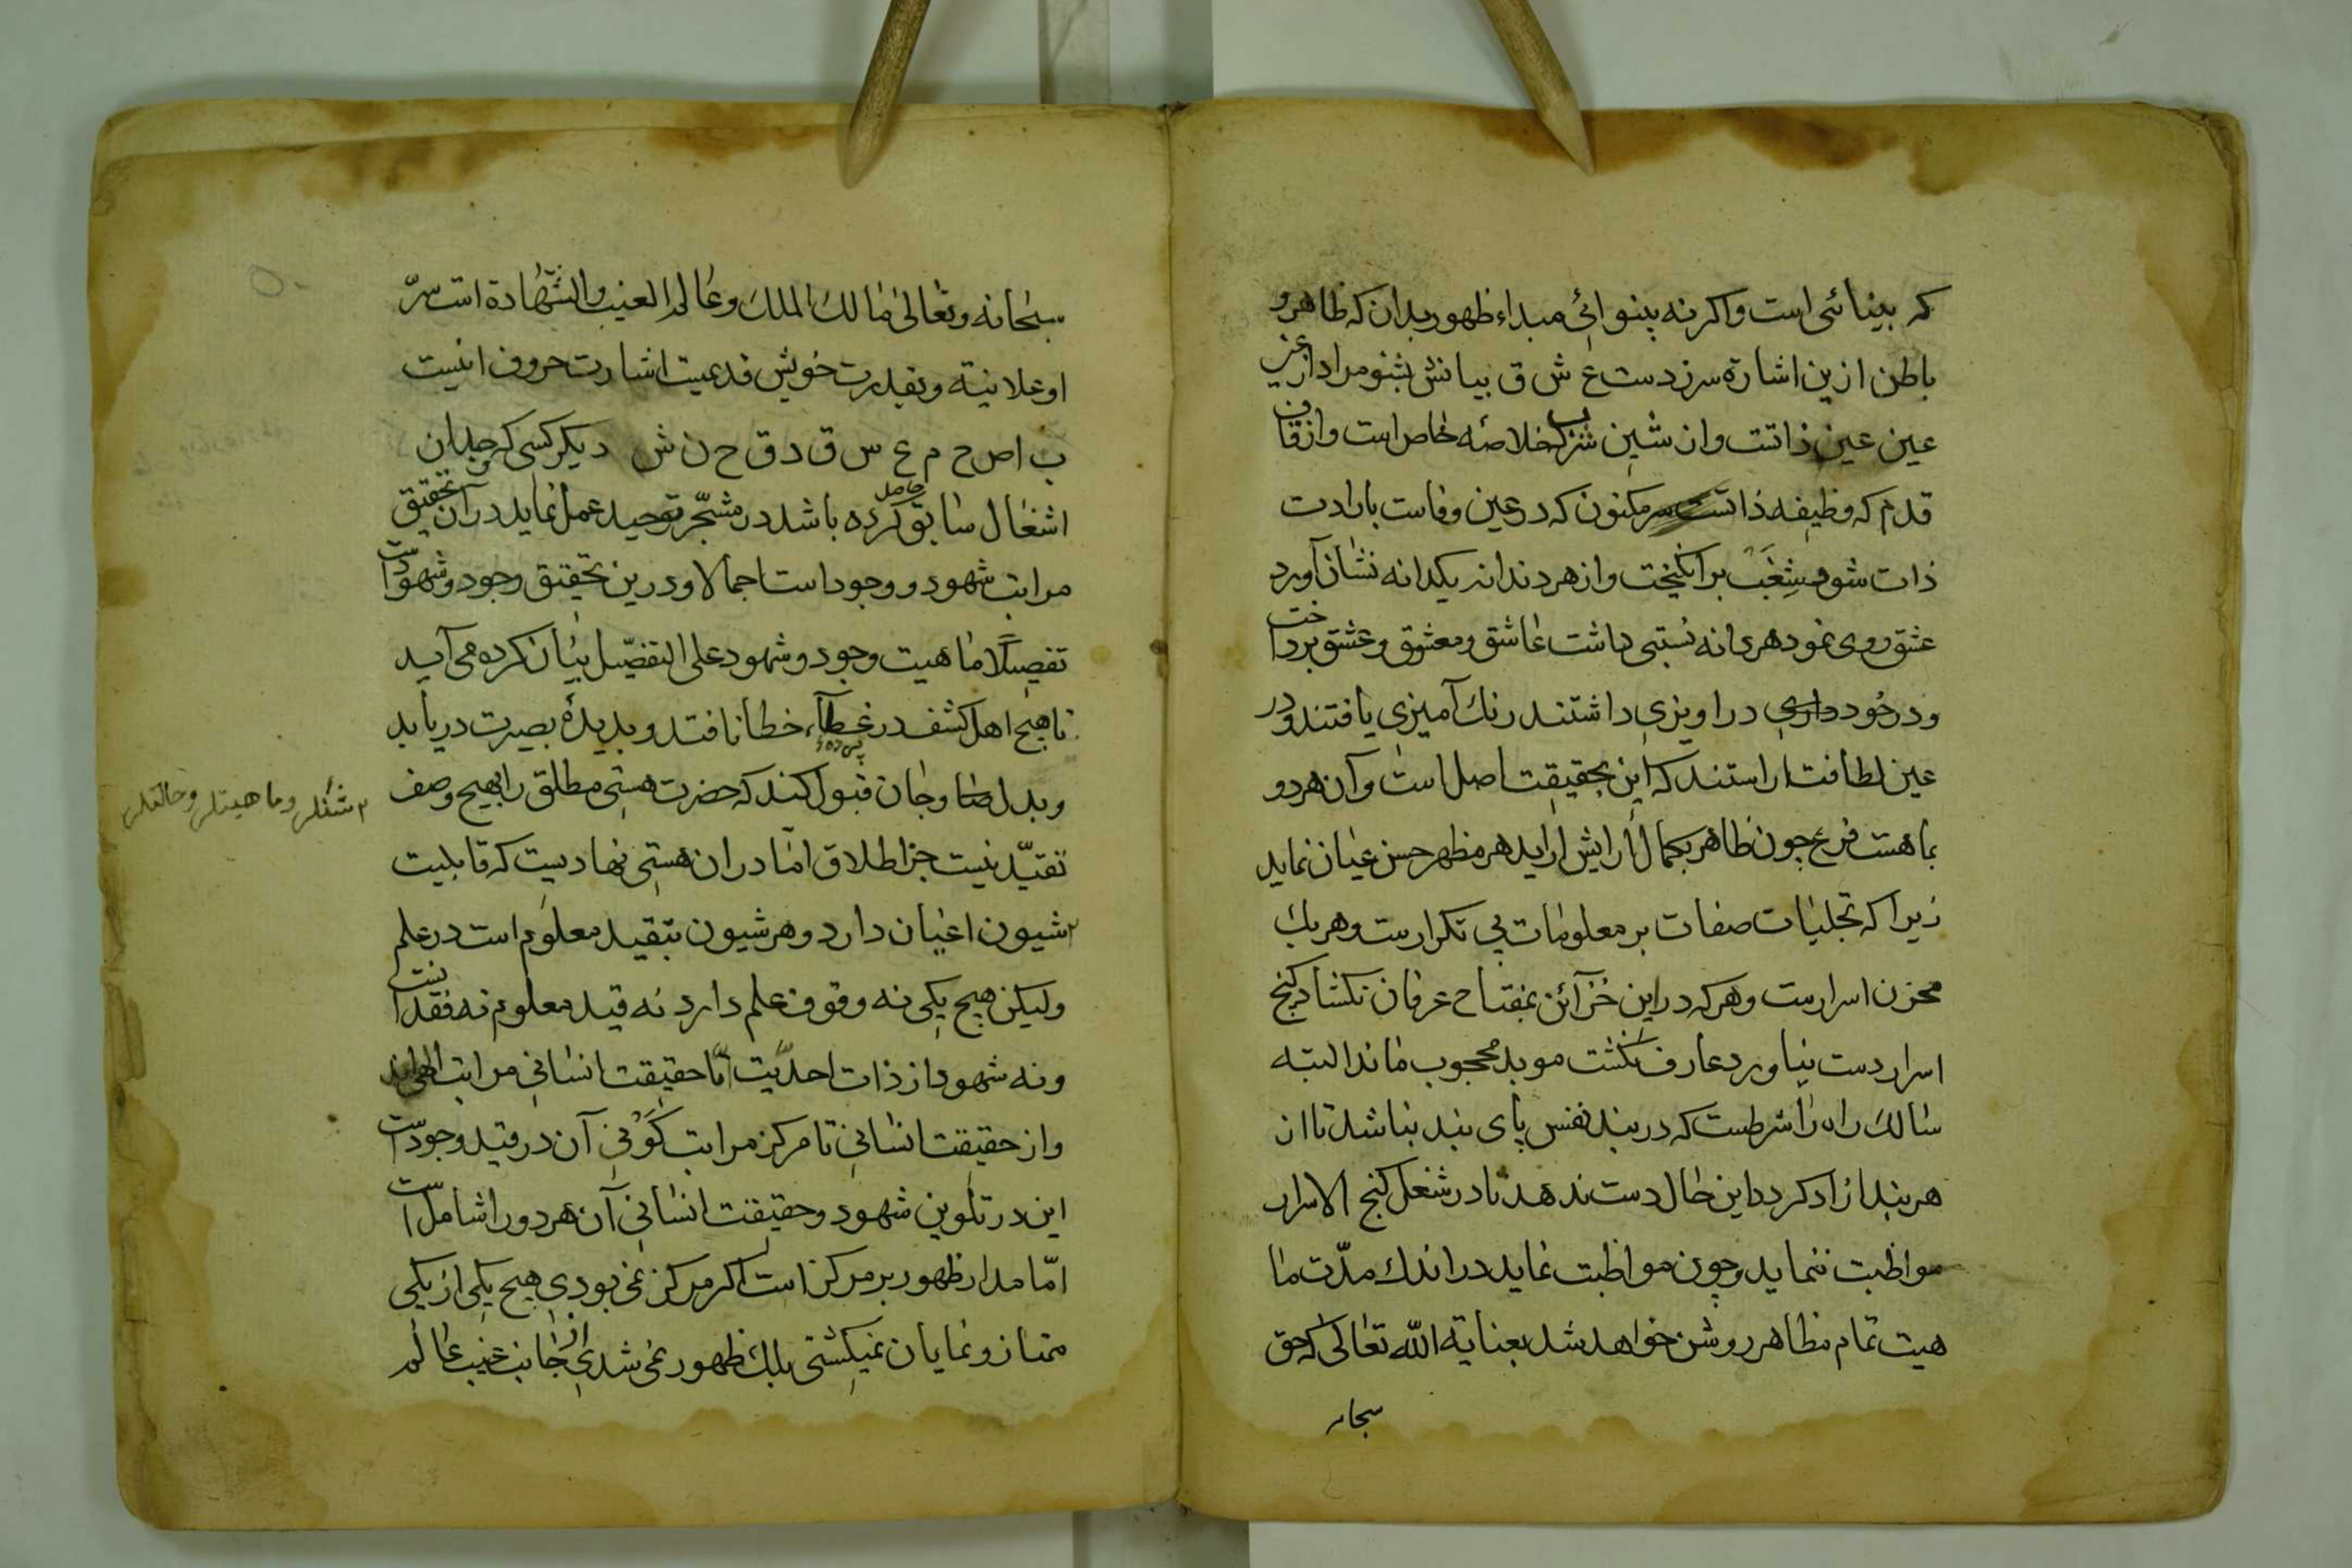 که بینائی است واکرنه بینوائی مبداء ظهور بدان که ظاهر و
باطن ازین اشارة سرزدست ع ش ق بیانش بشنو مراد از عین
عین عین ذاتت وان شین خلاصه خاص است وازقاف
قدم که وظیفه ذاتت سر مکنون که در عین وفاست بارادت
ذات شور شغب برانکیخت وازهر دندانه یکدانه نشان آورد
عشق روی نمود هر دانه نسبتی داشت عاشق ومعشوق وعشق برداخت
ودرخود دراویزی داشتند رنك آمیزی یافتند ودر
عین لطافت اراستند که این بحقیقت اصل است وآن هر دو
بماهیت فرع چون ظاهر بجمال ارایش اراید هر مظهر حسن عیان نماید
زیرا که تجلیات صفات بر معلومات بی تکرارست وهریك
مخزن اسرارست وهرکه دراین خزآئن بمفتاح عرفان نکشاد کنج
اسرار دست نیاورد عارف نکشت موبد محجوب ماند البته
سالك راه را شرطست که دربند نفس پای بند نباشد تا از
هر بند ازاد کردد این حال دست ندهد تا در شغل کنج الاسرار
مواظبت ننماید وچون مواظبت نماید در اندك مدّت ما
هیت تمام مظاهر روشن خواهد شد بعنایة الله تعالی که حق
سبحانه
سبحانه وتعالی مالك الملك وعالم الغیب والشهادة است سرّ
اوعلانیة وبقدرت خویش قدعیت اشارت حروف اینست
ب ا ص ح م ع س ق د ق ح ن ش دیکر کسی که چندان
اشغال سابق حاصل کرده باشد در مشجّر توحید عمل نماید در آن تحقیق
مراتب شهود و وجود است اجمالا ودرین تحقیق وجود وشهود است
تفصیلًا ماهیت وجود وشهود علی التفصیل بیان کرده می آید
تا هیچ اهل کشف در غطآء خطا نافتد وبدیدۀ بصیرت دریابد
وبدل صفا وجان قبول کند که حضرت هستی مطلق را بهیچ وصف
تقیّد نیست جز اطلاق امّا دران هستی نهادیست که قابلیت
شیون اعیان دارد وهر شیون بتقید معلوم است در علم
ولیکن هیچ یکی نه وقوف علم دارد نه قید معلوم نه فقدانست
ونه شهود از ذات احدیّت امّا حقیقت انسانی مراتب الهی اند
واز حقیقت انسانی تا مرکز مراتب کَوْنی آن در قید وجود است
این در تلوین شهود وحقیقت انسانی آن هر دورا شامل است
امّا مدار ظهور بر مرکز است اکر مرکز نمی بودی هیچ یکی از یکی
ممتاز ونمایان نمیکشتی بلك ظهور نمی شدی از جانب غیب عالم